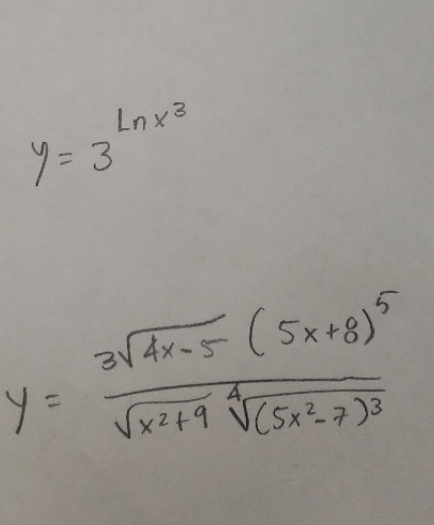 y = 3^{Ln x^3}
y = \frac{3\sqrt{4x-5} (5x+8)^5}{\sqrt{x^2+9} \sqrt[4]{(5x^2-7)^3}}